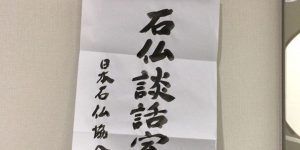 石仏談話室
日本石仏協会